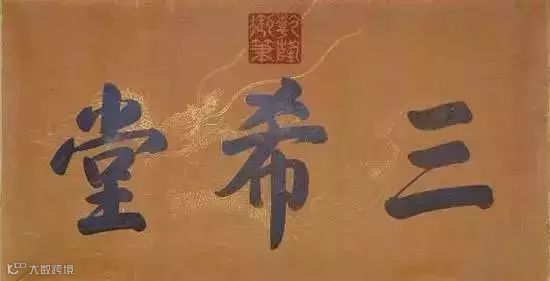 乾隆御筆
三希堂
大数跨境